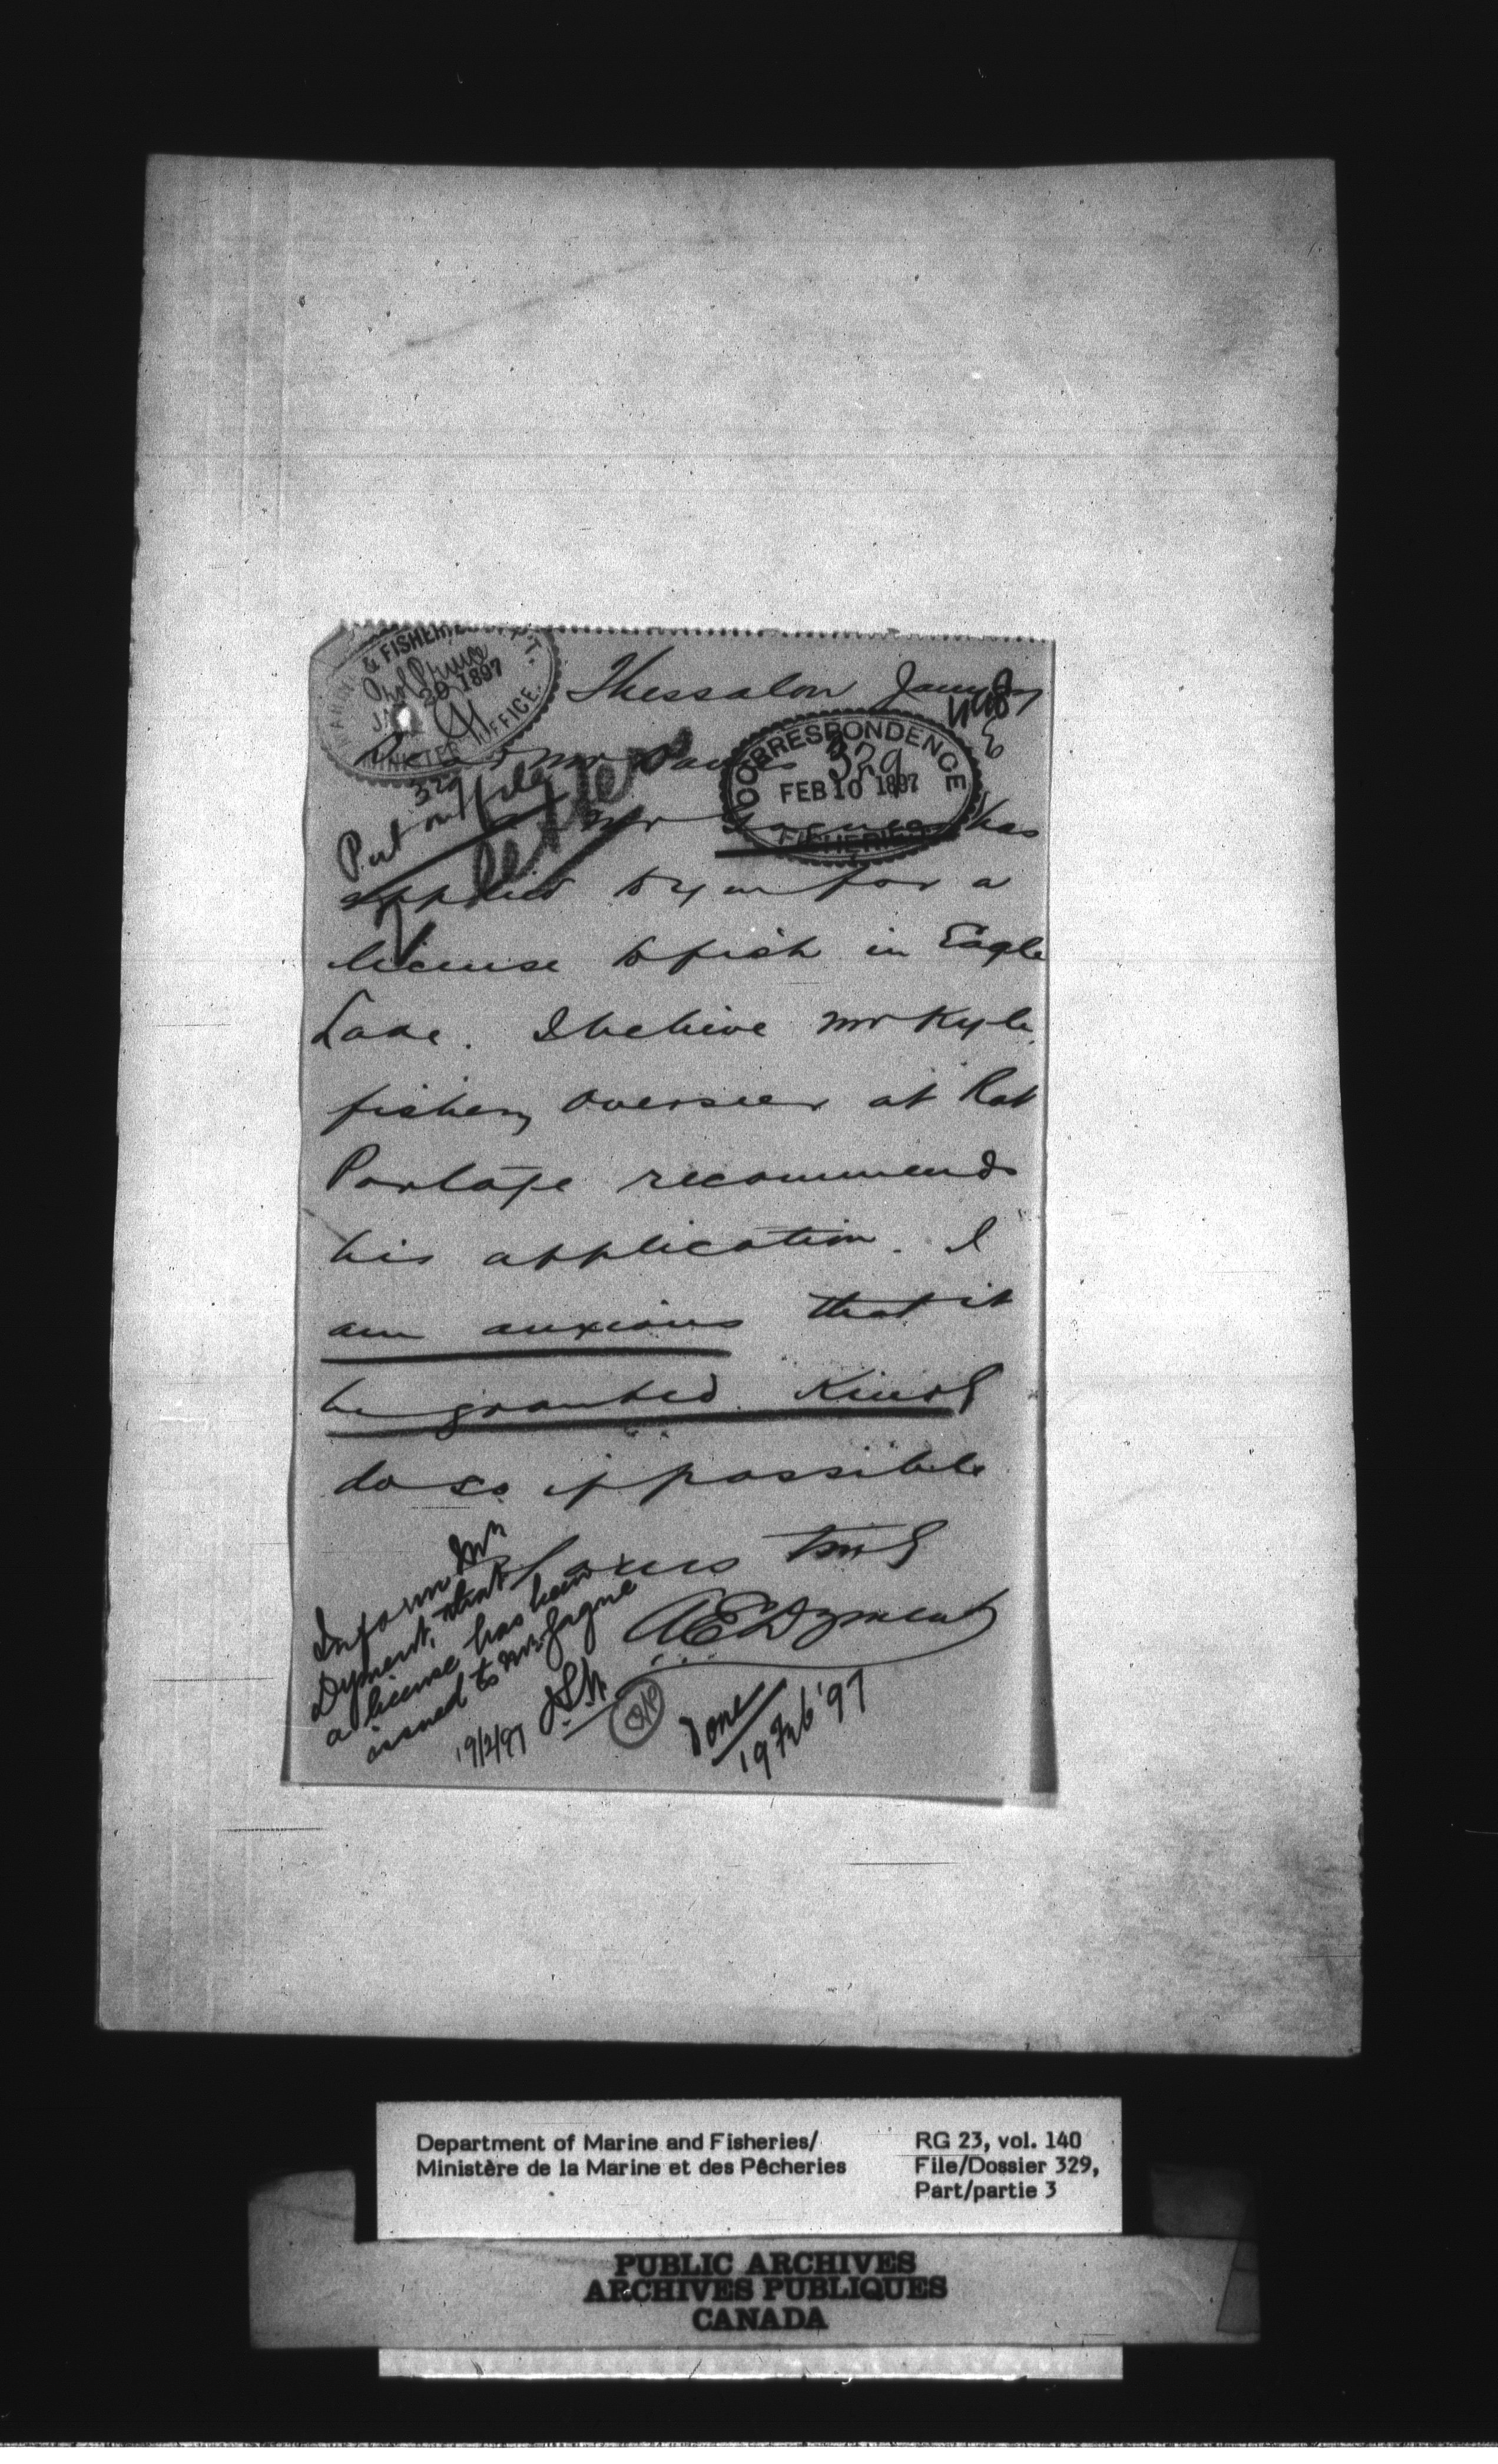 MARINE & FISHERIES DEPT.
JAN 20 1897
MINISTER'S OFFICE.
Thessalon Jany
CORRESPONDENCE
329
FEB 10 1897
FISHERIES
Dear Mr Davies
329
Put on file
letter
Mr Gagne has
applied to you for a
license to fish in Eagle
Lake. I believe Mr Kyle
fishery overseer at Rat
Portage recommends
his application. I
am anxious that it
be granted. Kindly
do so if possible
Yours truly
A E Dyment
Inform Mr
Dyment, that
a license has been
issued to Mr. Gagne
19/2/97
Done
19 Feb '97
Department of Marine and Fisheries/
Ministère de la Marine et des Pêcheries
RG 23, vol. 140
File/Dossier 329,
Part/partie 3
PUBLIC ARCHIVES
ARCHIVES PUBLIQUES
CANADA